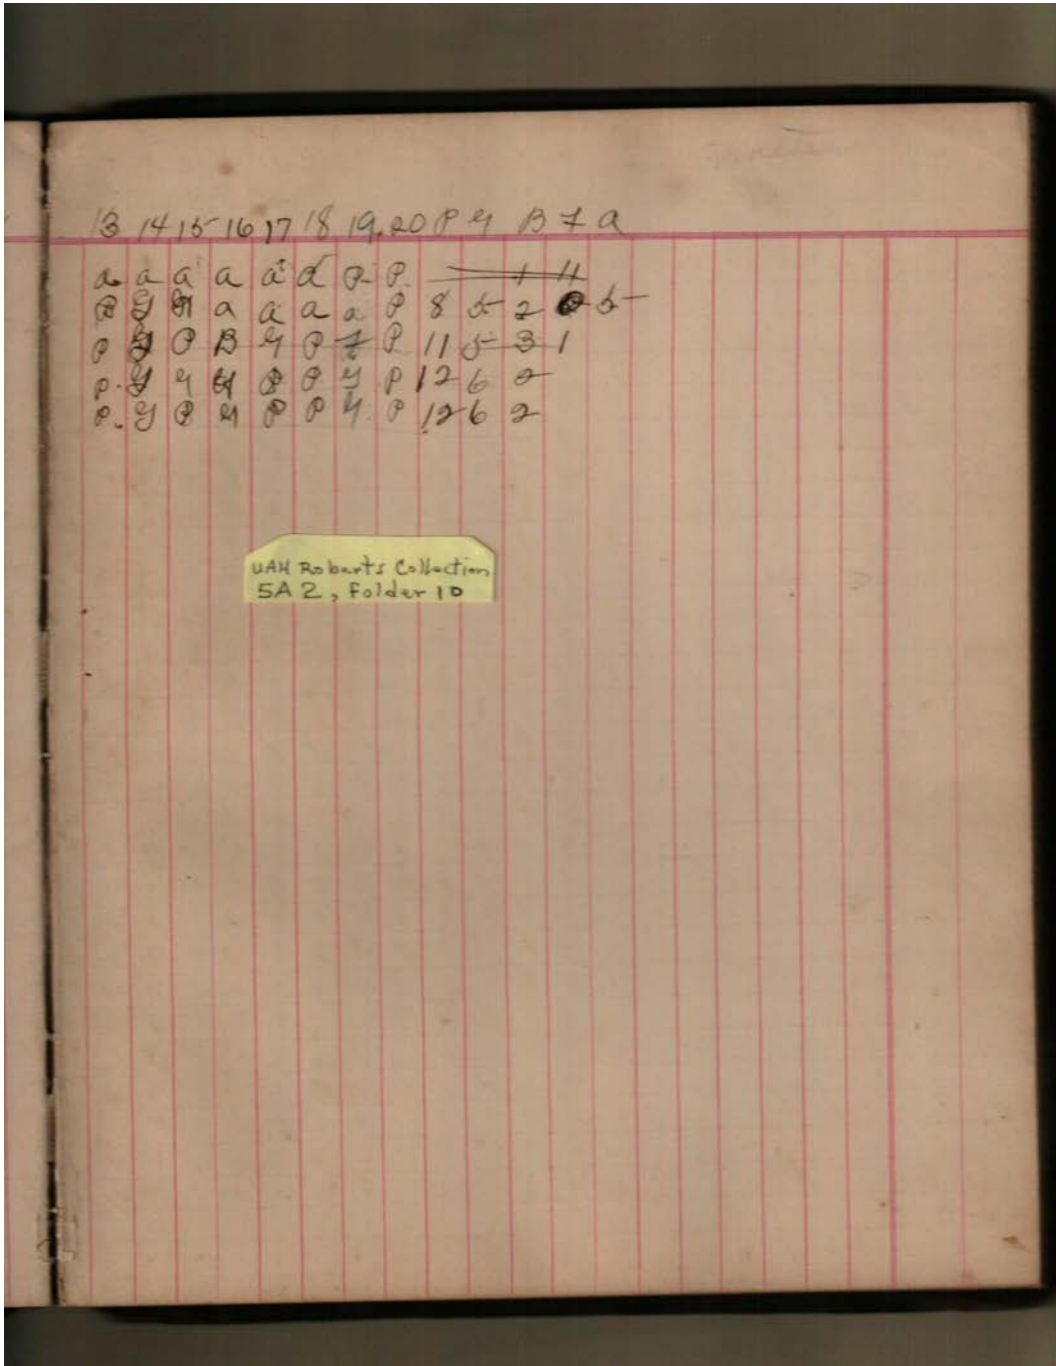 13 14 15 16 17 18 19. 20 P G B F a
a a a a a a P P. 1 11
P G G a a a a P 8 5 2 5
P G P B G P F P 11 5 3 1
P. G G G P P G P 12 6 2
P. G P G P P G. P 12 6 2
UAH Roberts Collection
5A2, Folder 10